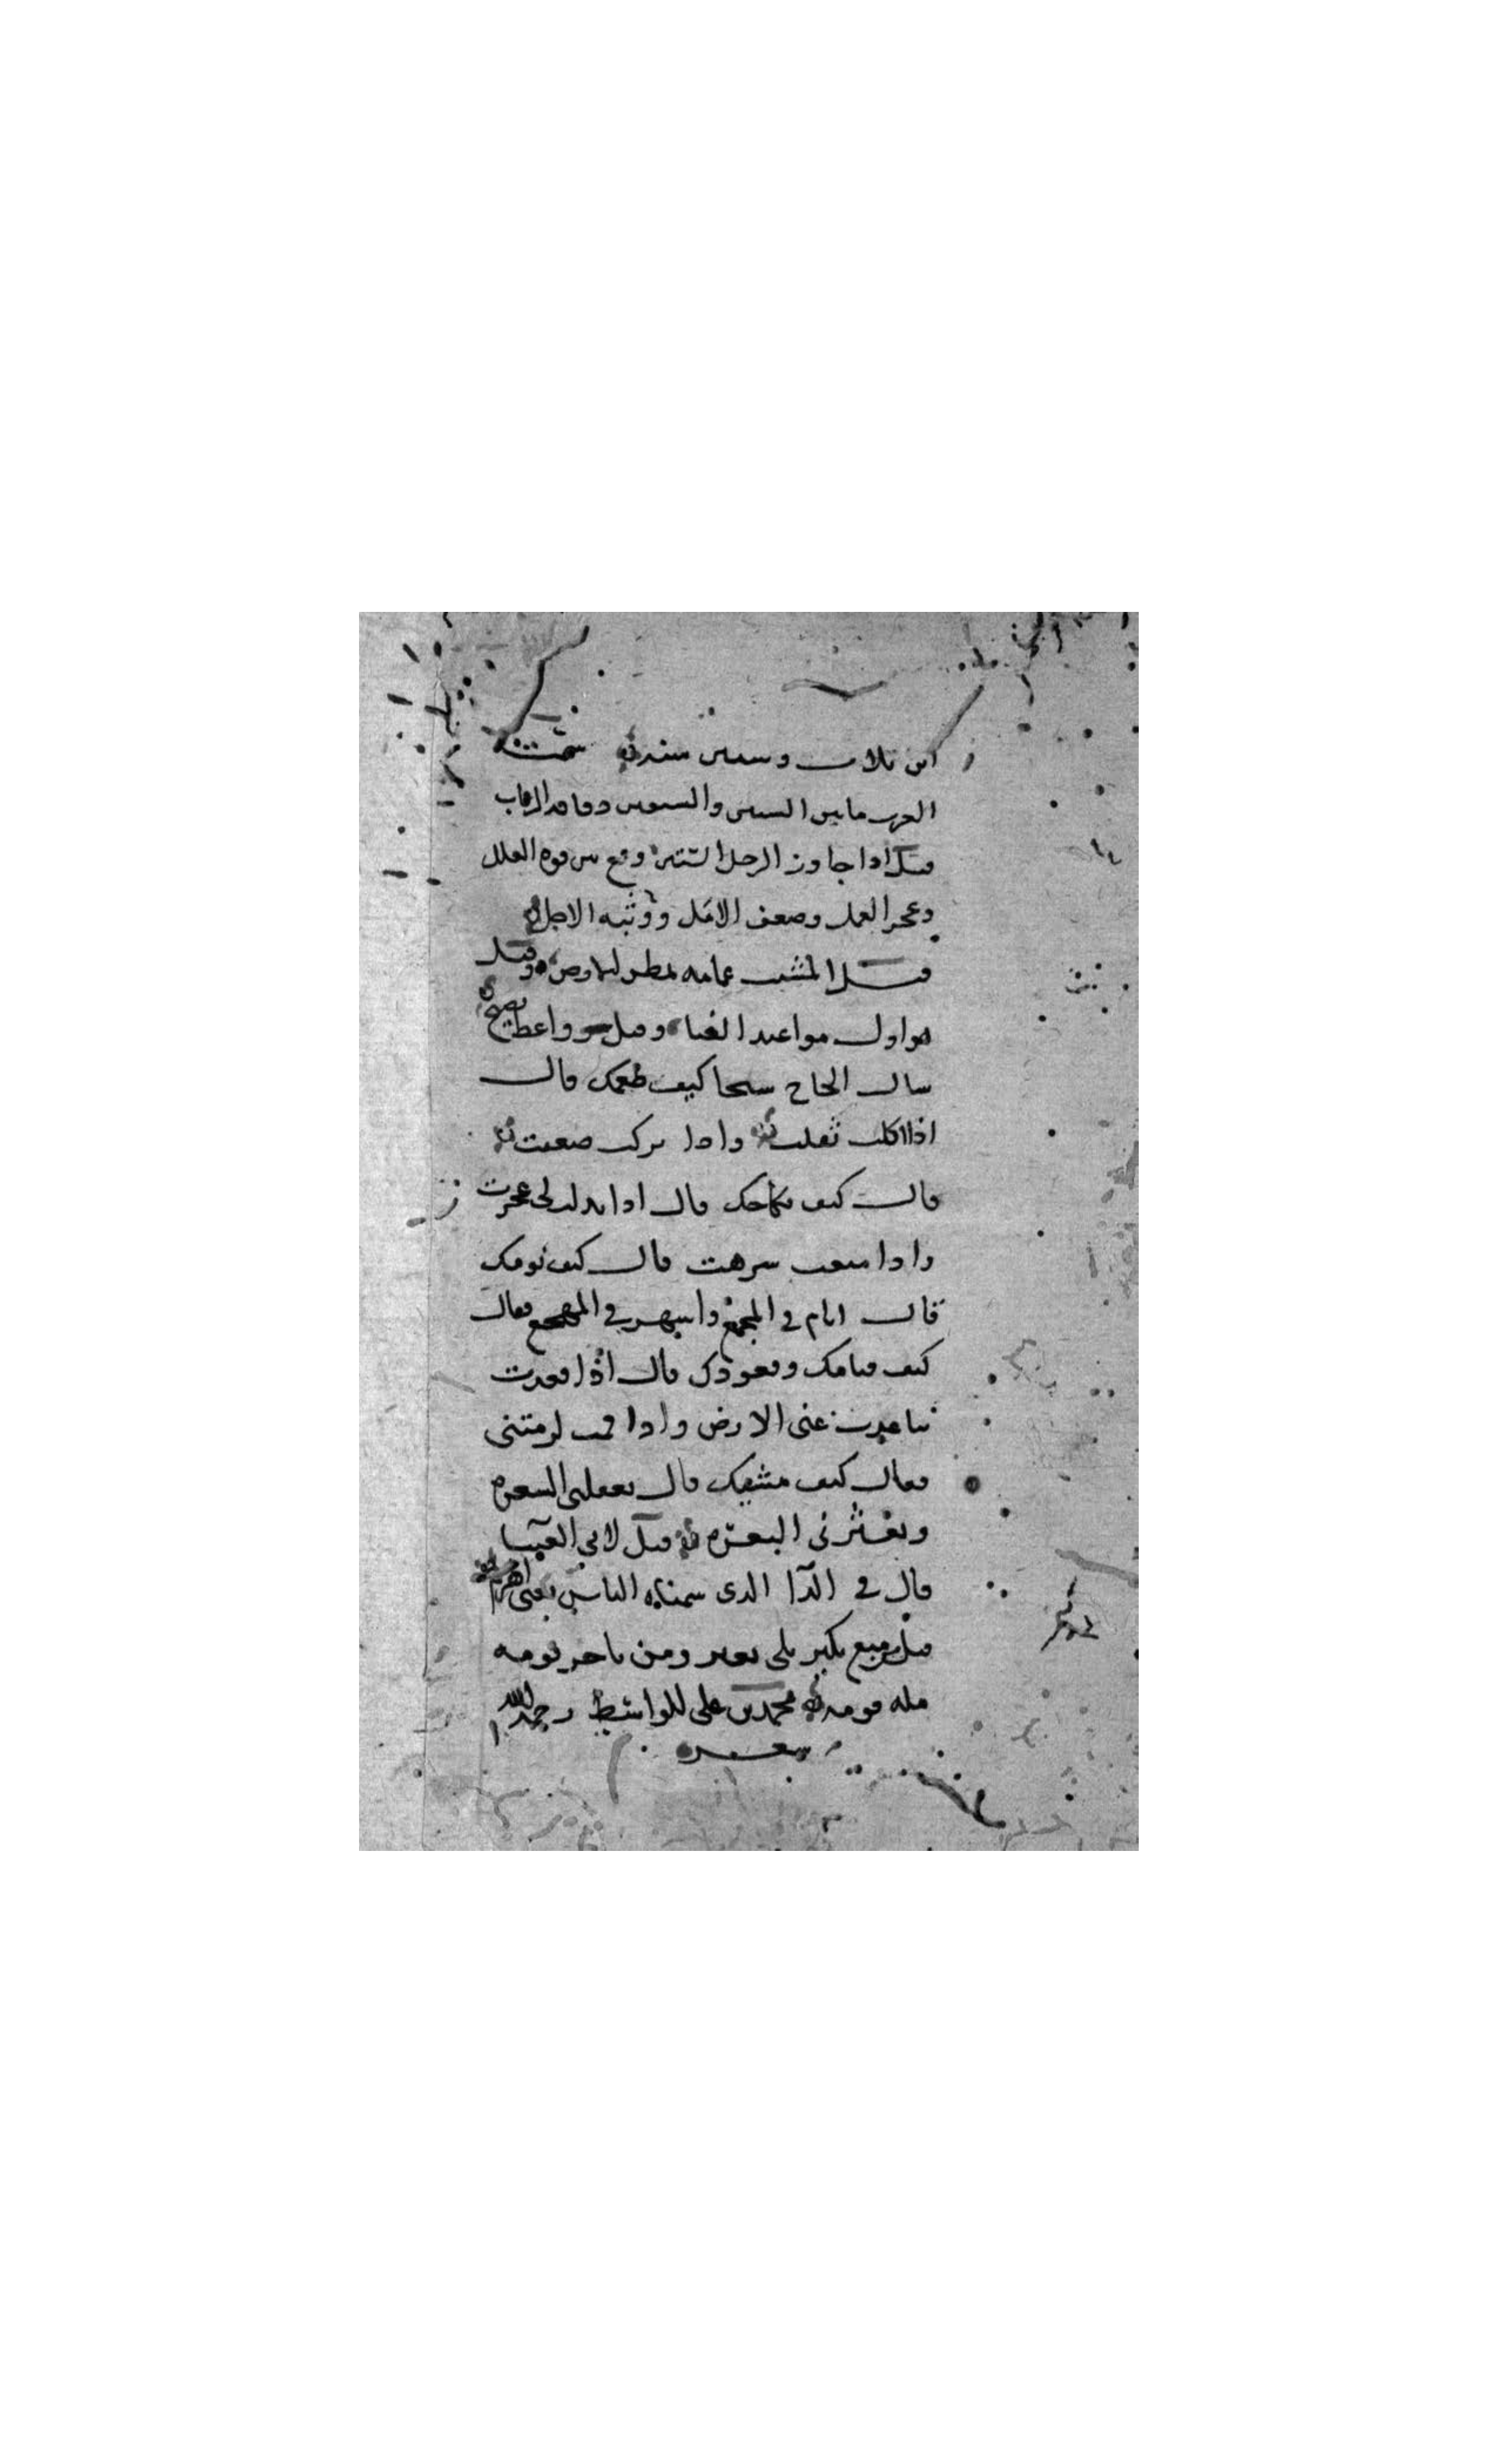 ابن ثلاث وستين سنة سمت
العرب ما بين الستين والسبعين دقاقة الرقاب
قيل اذا جاوز الرجل الستين وقع بين قوة العلل
وعجز العمل وضعف الامل ووثبة الاجل
قيل الشيب غمامة تمطر الامراض وقيل
هو اول مواعيد الفناء وقيل هو واعظ نصيح
سال الحجاج شيخا كيف طعمك قال
اذا اكلت ثقلت واذا تركت ضعفت
قال كيف نكاحك قال اذا بذل لي عجزت
واذا منعت شرهت قال كيف نومك
قال انام في المجمع واسهر في المضجع فقال
كيف قيامك وقعودك قال اذا قعدت
تباعدت عني الارض واذا قمت لزمتني
فقال كيف مشيك قال تعقلني الشعرة
وتعثرني البعرة قيل لابي العيناء
قال في الداء الذي يتمناه الناس يعني الهرم
قيل من بكر
قومه محمد بن علي الواسطي رحمه الله